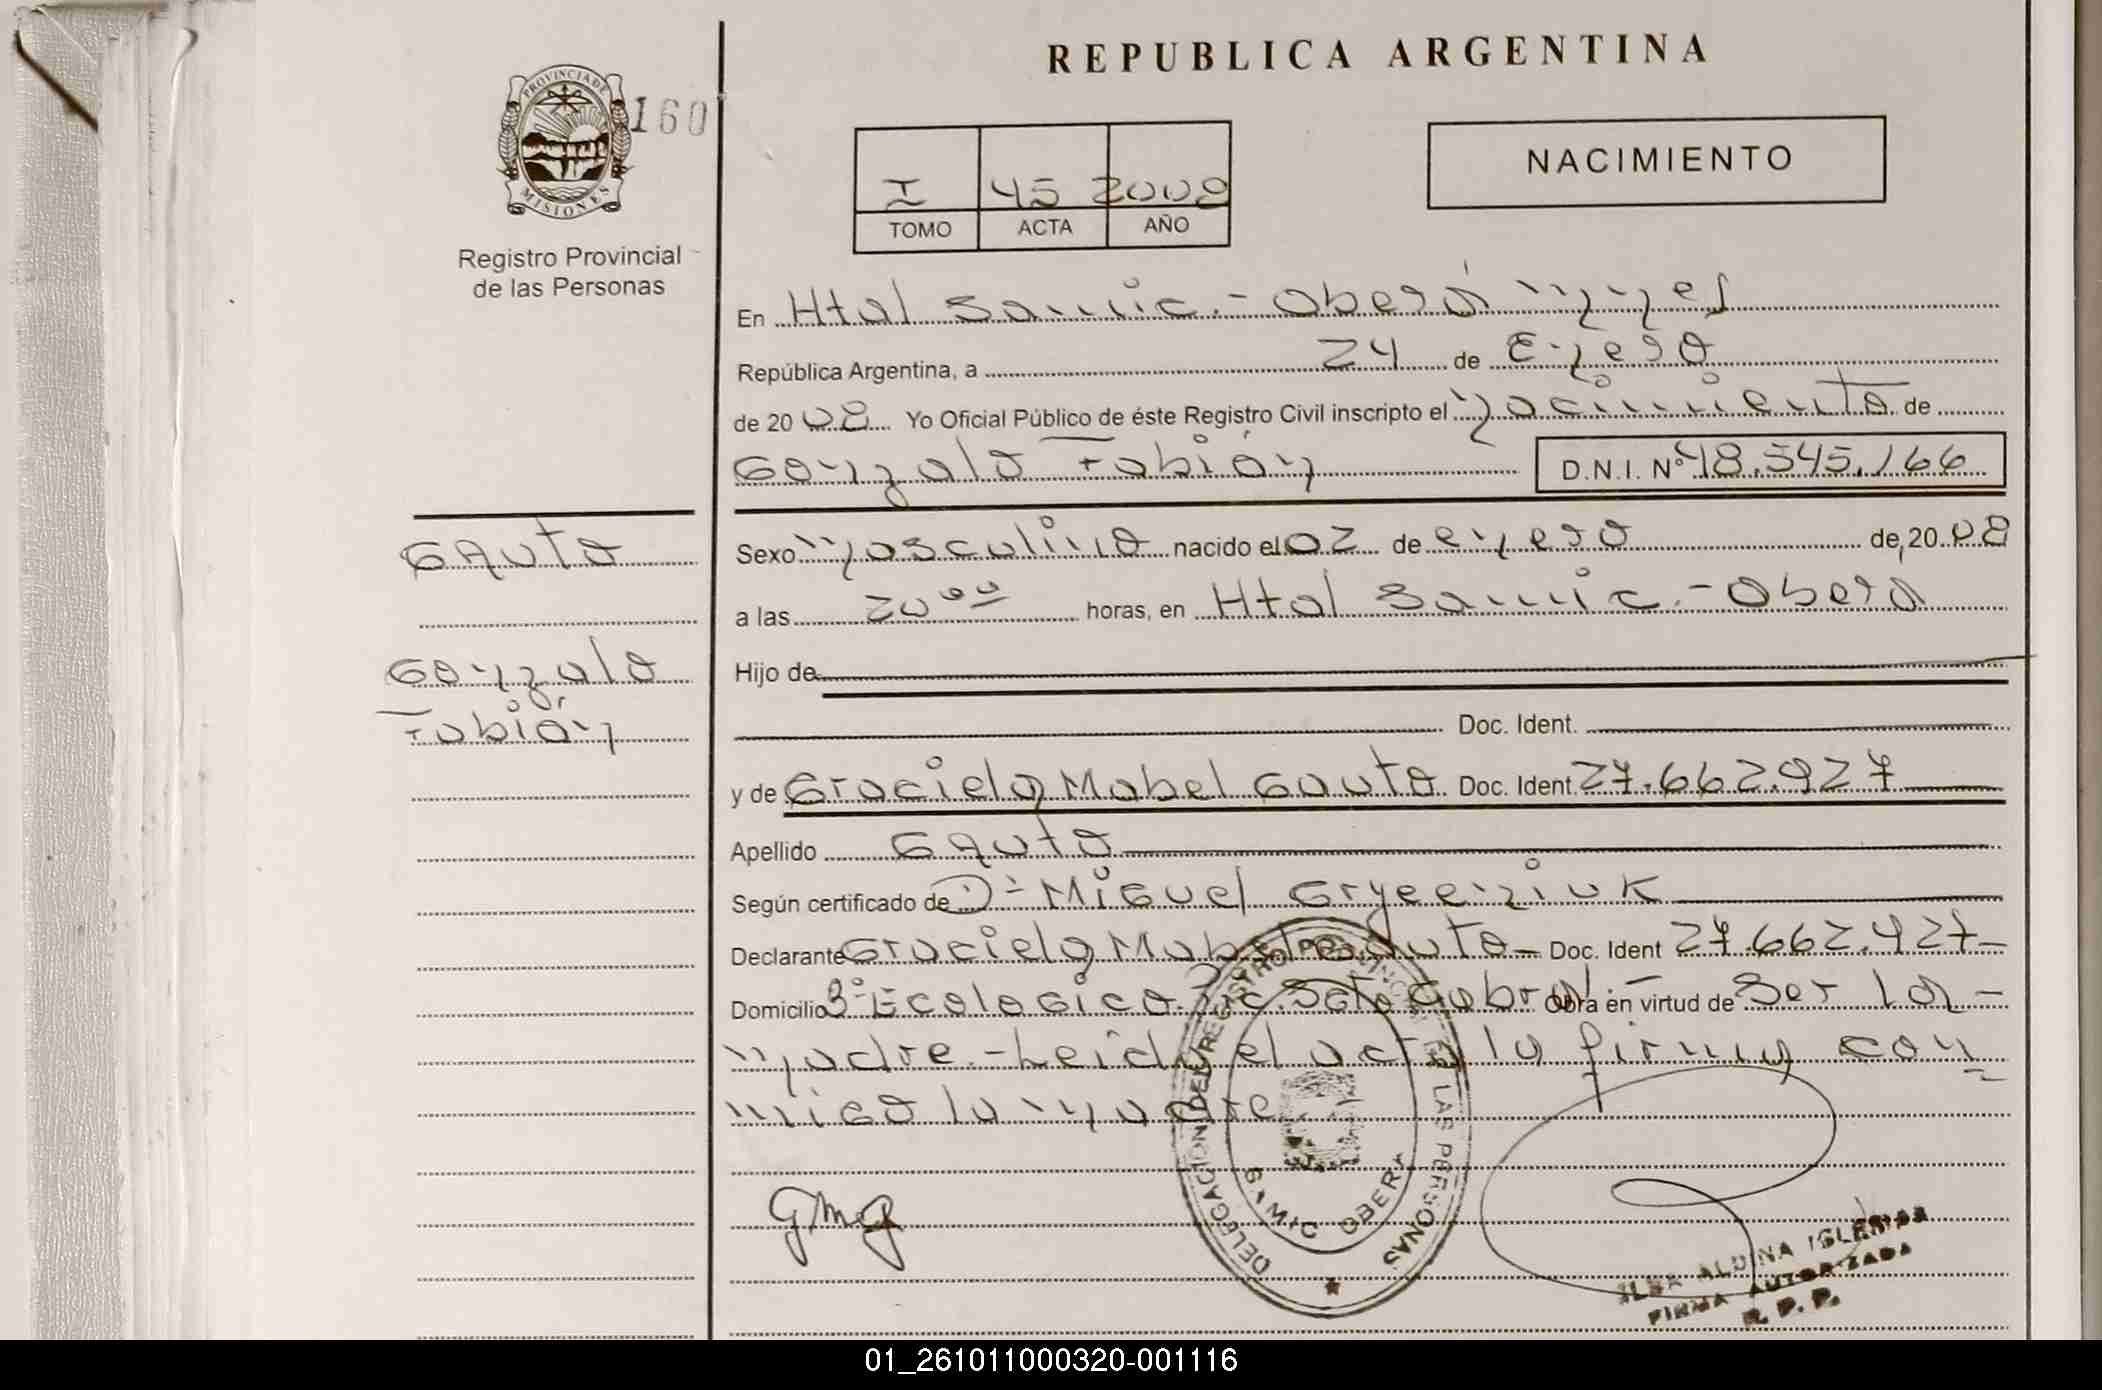 REPUBLICA ARGENTINA
PROVINCIA DE MISIONES
160
NACIMIENTO
I 45 2008
TOMO ACTA AÑO
Registro Provincial
de las Personas
En Htal Samic.- Oberá Mnes
República Argentina, a 24 de Enero
de 2008 Yo Oficial Público de éste Registro Civil inscripto el nacimiento de
Gonzalo Fabián D.N.I. Nº 48.545.166
Gauto
Sexo masculino nacido el 02 de enero de 2008
a las 20 00 horas, en Htal Samic.- Obera
Gonzalo
Fabián
Hijo de
Doc. Ident.
y de Graciela Mabel Gauto Doc. Ident 27.662.927
Apellido Gauto
Según certificado de D- Miguel
Declarante Graciela Mabel Gauto - Doc. Ident 27.662.427-
Domicilio Bº Ecologico. Sgto Cabral.- Obra en virtud de Ser la -
madre.- Leida el acta la firma con
migo la madre
GMG
DELEGACION DEL REGISTRO PROVINCIAL DE LAS PERSONAS
SAMIC OBERA
ALDINA IGLESIAS
FIRMA AUTORIZADA
R. P. P.
01_261011000320-001116